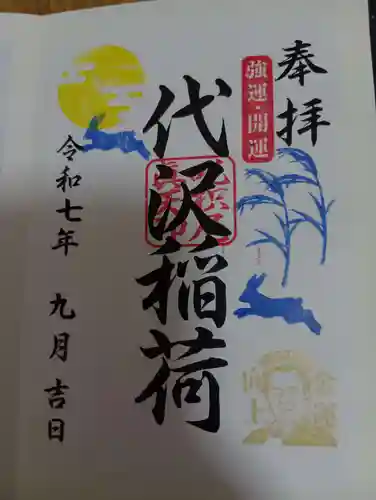 奉拝
強運・開運
代沢稲荷
令和七年 九月 吉日
金運
向上